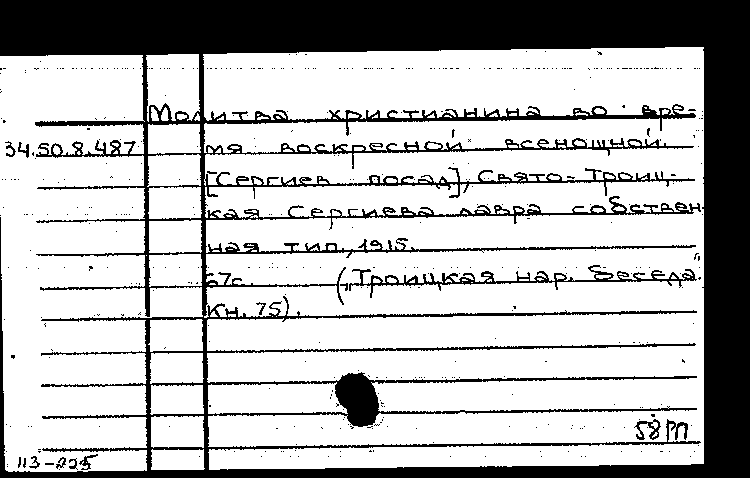 Молитва христианина во вре=
34.50.8.487 мя воскресной всенощной.
[Сергиев посад], Свято=Троиц-
кая Сергиева лавра собствен
ная тип., 1915.
67с. („Троицкая нар. беседа"
Кн. 75).
58
113-225